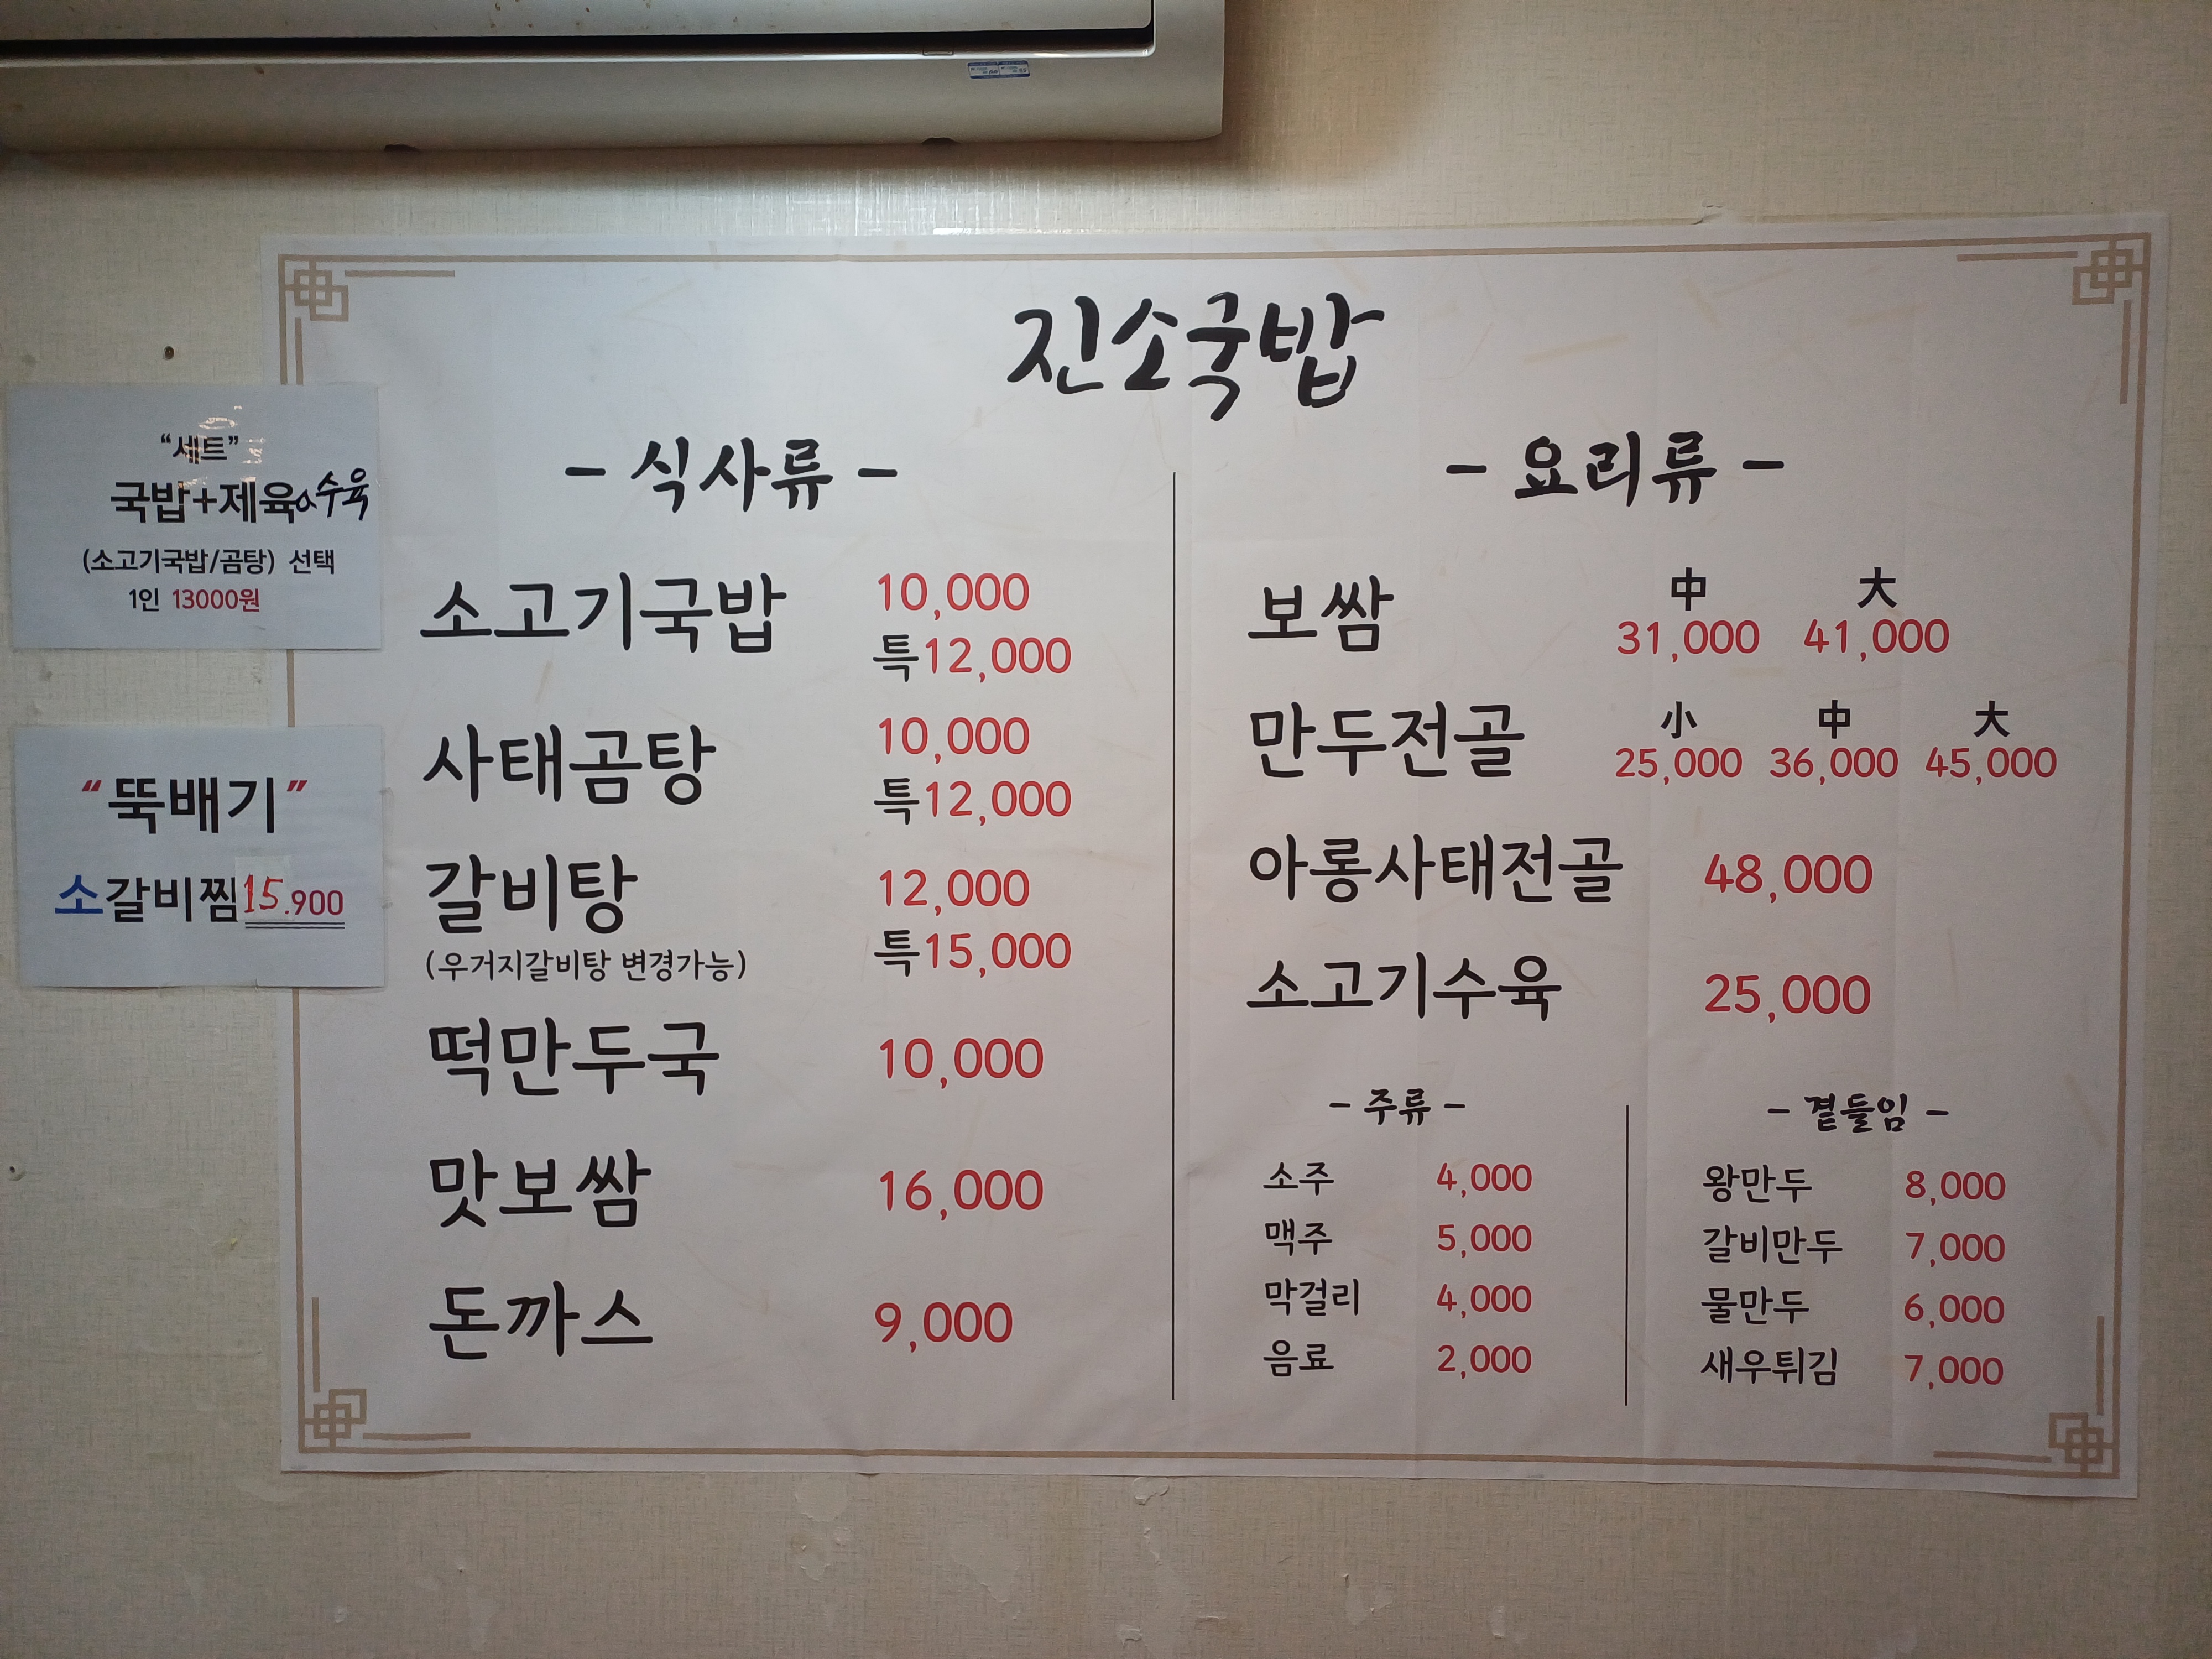 진소국밥
"세트"
국밥+제육 수육
(소고기국밥/곰탕) 선택
1인 13000원
"뚝배기"
소갈비찜 15.900
- 식사류 -
소고기국밥 10,000
특12,000
사태곰탕 10,000
특12,000
갈비탕 12,000
(우거지갈비탕 변경가능) 특15,000
떡만두국 10,000
맛보쌈 16,000
돈까스 9,000
- 요리류 -
中 大
보쌈 31,000 41,000
小 中 大
만두전골 25,000 36,000 45,000
아롱사태전골 48,000
소고기수육 25,000
- 주류 -
소주 4,000
맥주 5,000
막걸리 4,000
음료 2,000
- 곁들임 -
왕만두 8,000
갈비만두 7,000
물만두 6,000
새우튀김 7,000